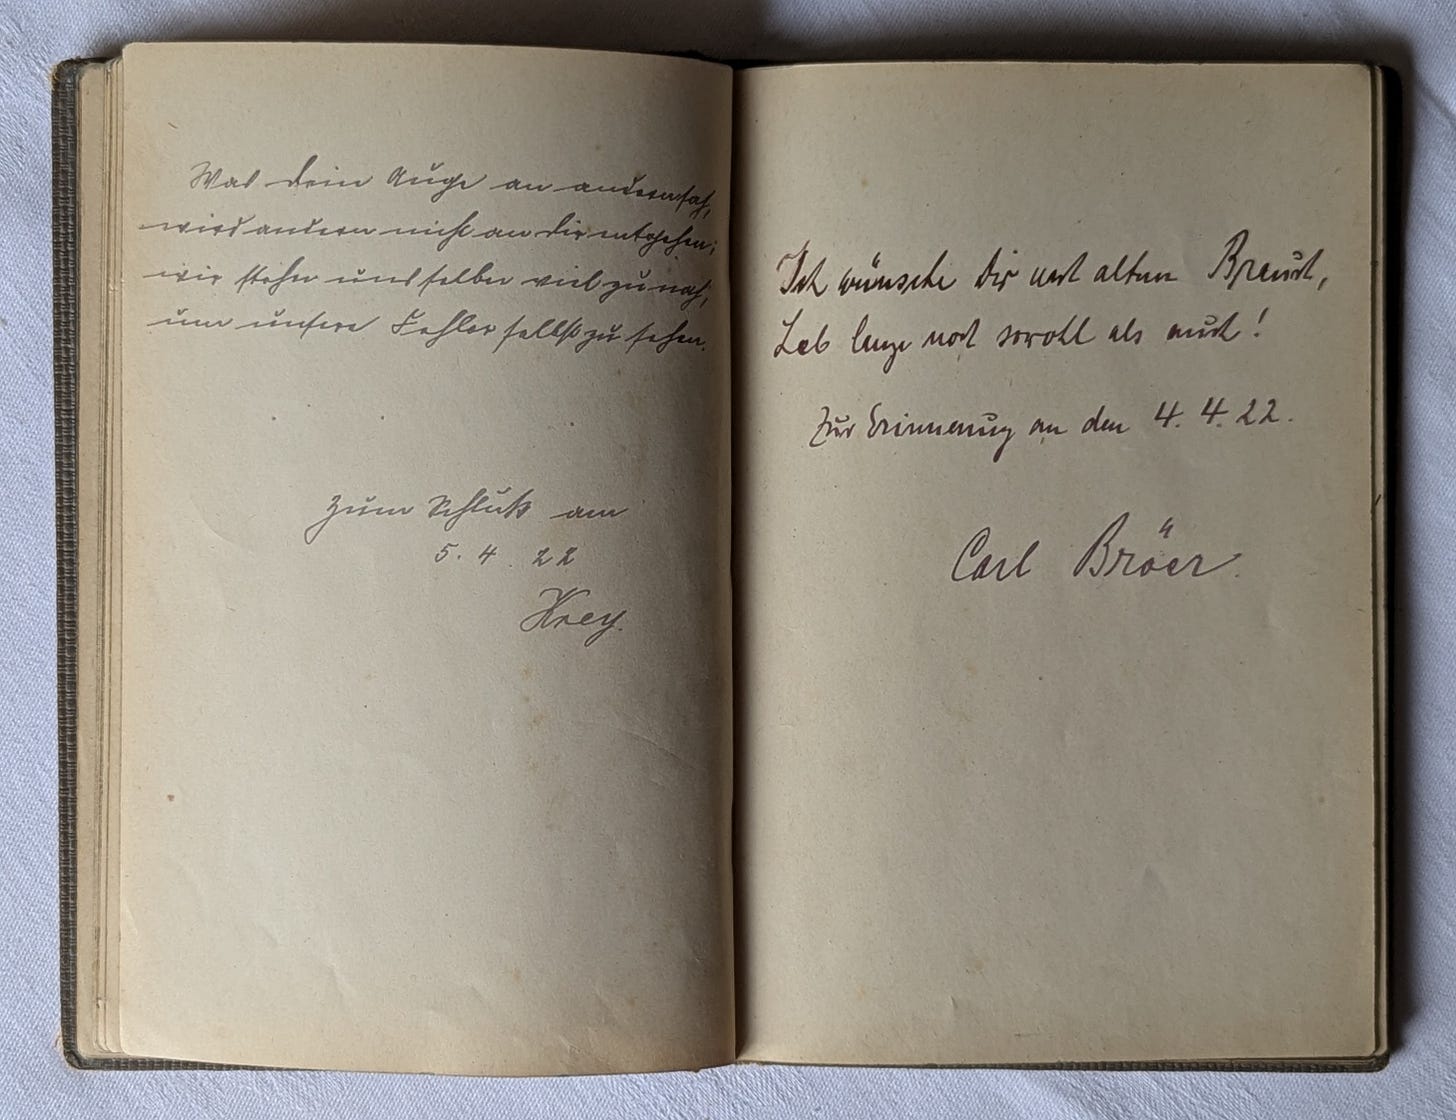 Was dein Auge an andern sah,
wird andern nicht an dir entgehen;
wir stehen uns selber viel zu nah,
um unsere Fehler selbst zu sehen.
Zum Schluß am
5. 4. 22
Krey.
Ich wünsche Dir nach altem Brauch,
Leb lange noch sowohl als auch!
Zur Erinnerung an den 4. 4. 22.
Carl Bröer.